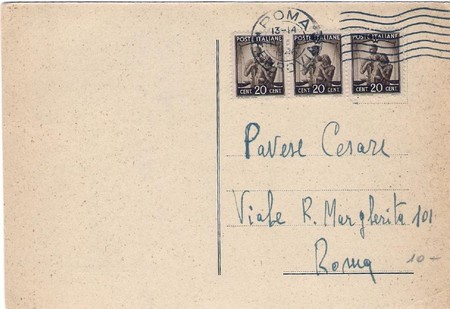 ROMA
13-14
POSTE ITALIANE POSTE ITALIANE POSTE ITALIANE
CENT 20 CENT CENT 20 CENT CENT 20 CENT
Pavese Cesare
Viale R. Margherita 101
Roma
10-